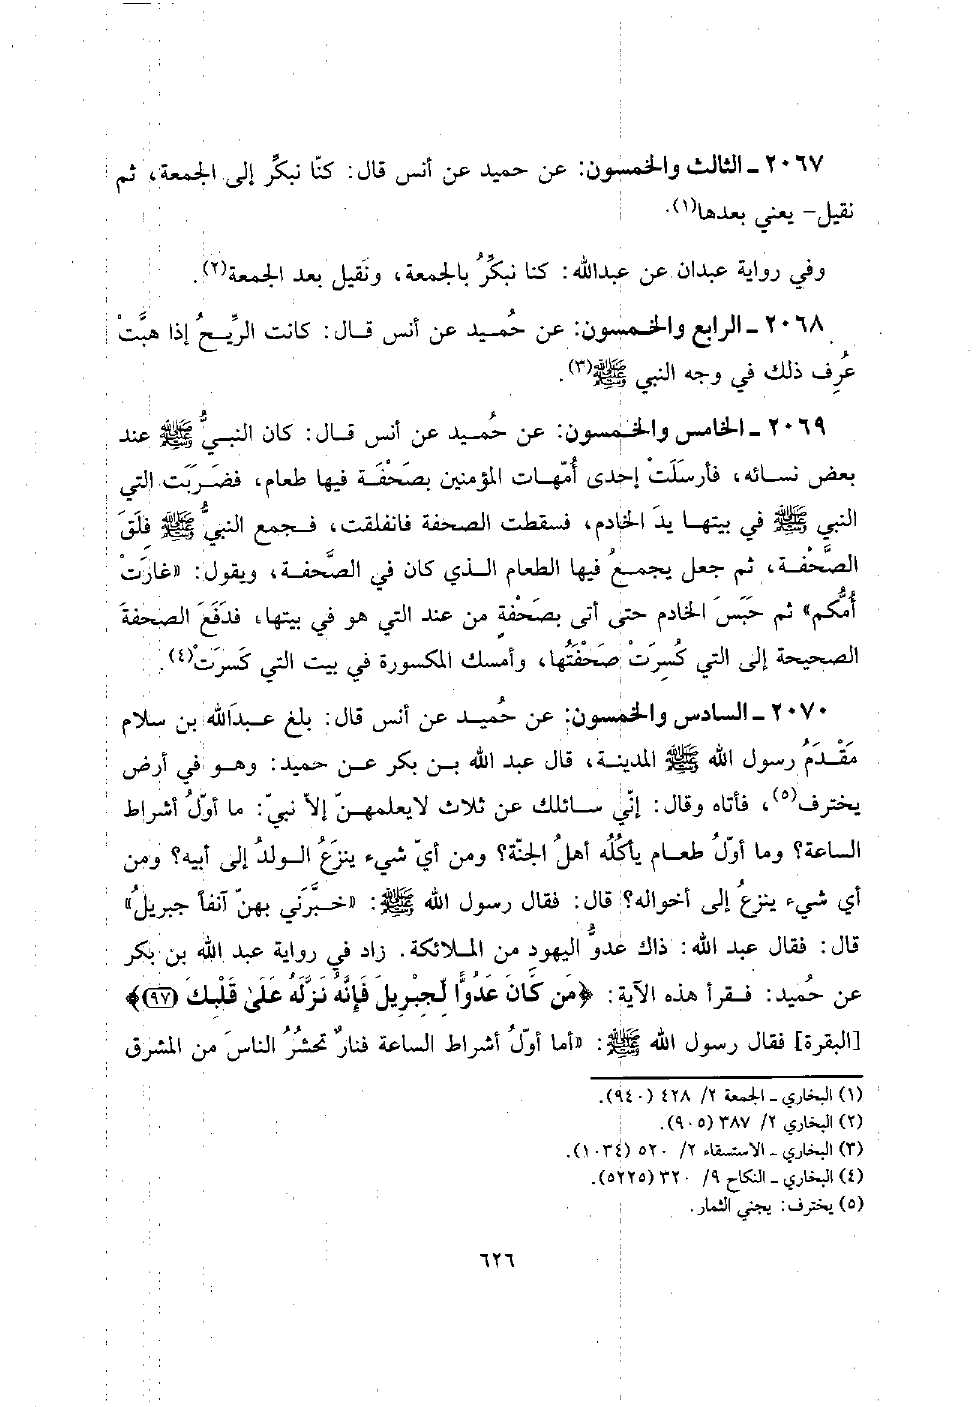 ٢٠٦٧ ـ الثالث والخمسون: عن حميد عن أنس قال: كنّا نبكِّر إلى الجمعة، ثم
نقيل- يعني بعدها(١).
وفي رواية عبدان عن عبدالله: كنا نبكِّرُ بالجمعة، ونَقيل بعد الجمعة(٢).
٢٠٦٨ ـ الرابع والخمسون: عن حُميد عن أنس قال: كانت الرِّيحُ إذا هبَّتْ
عُرِف ذلك في وجه النبي ﷺ(٣).
٢٠٦٩ ـ الخامس والخمسون: عن حُميد عن أنس قال: كان النبيُّ ﷺ عند
بعض نسائه، فأرسلَتْ إحدى أُمّهات المؤمنين بصَحْفَة فيها طعام، فضَرَبَت التي
النبي ﷺ في بيتها يدَ الخادم، فسقطت الصحفة فانفلقت، فجمع النبيُّ ﷺ فِلَقَ
الصَّحْفة، ثم جعل يجمعُ فيها الطعام الذي كان في الصَّحفة، ويقول: «غارَتْ
أُمُّكم» ثم حَبَسَ الخادم حتى أتى بصَحْفةٍ من عند التي هو في بيتها، فدَفَعَ الصحفةَ
الصحيحة إلى التي كُسِرَتْ صَحْفَتُها، وأمسك المكسورة في بيت التي كَسرَتْ(٤).
٢٠٧٠ ـ السادس والخمسون: عن حُميد عن أنس قال: بلغ عبدَالله بن سلام
مَقْدَمُ رسول الله ﷺ المدينة، قال عبد الله بن بكر عن حميد: وهو في أرض
يخترف(٥)، فأتاه وقال: إنّي سائلك عن ثلاث لايعلمهنّ إلاّ نبيّ: ما أوّلُ أشراط
الساعة؟ وما أوّلُ طعام يأكُلُه أهلُ الجنّة؟ ومن أيّ شيء ينزَعُ الولدُ إلى أبيه؟ ومن
أي شيء ينزعُ إلى أخواله؟ قال: فقال رسول الله ﷺ: «خبَّرَني بهنّ آنفاً جبريلُ»
قال: فقال عبد الله: ذاك عدوُّ اليهود من الملائكة. زاد في رواية عبد الله بن بكر
عن حُميد: فقرأ هذه الآية: ﴿مَن كَانَ عَدُوًّا لِّجِبْرِيلَ فَإِنَّهُ نَزَّلَهُ عَلَىٰ قَلْبِكَ (٩٧)﴾
[البقرة] فقال رسول الله ﷺ: «أما أوّلُ أشراط الساعة فنارٌ تحشُرُ الناسَ من المشرق
(١) البخاري ـ الجمعة ٢/ ٤٢٨ (٩٤٠).
(٢) البخاري ٢/ ٣٨٧ (٩٠٥).
(٣) البخاري ـ الاستسقاء ٢/ ٥٢٠ (١٠٣٤).
(٤) البخاري ـ النكاح ٩/ ٣٢٠ (٥٢٢٥).
(٥) يخترف: يجني الثمار.
٦٢٦